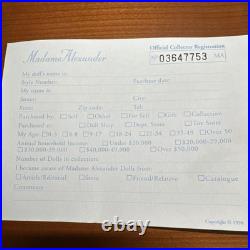 Madame Alexander
Official Collector Registration
Nº 03647753 MA
My doll's name is:
Style Number: Purchase date:
My name is:
Street: City:
State: Zip code: Tel:
Purchased by: Self Other For Self Gift Collection
Purchased at: Doll Shop Dept. Store Toy Store
My Age: 0-5 6-8 9-17 18-24 25-34 35-50 Over 50
Annual household income: Under $20,000 $20,000-29,000
$30,000-39,000 $40,000-49,000 Over $50,000
Number of Dolls in collection:
I became aware of Madame Alexander Dolls from:
Article/Editorial Store Friend/Relative Catalogue
Comments:
Copyright ©